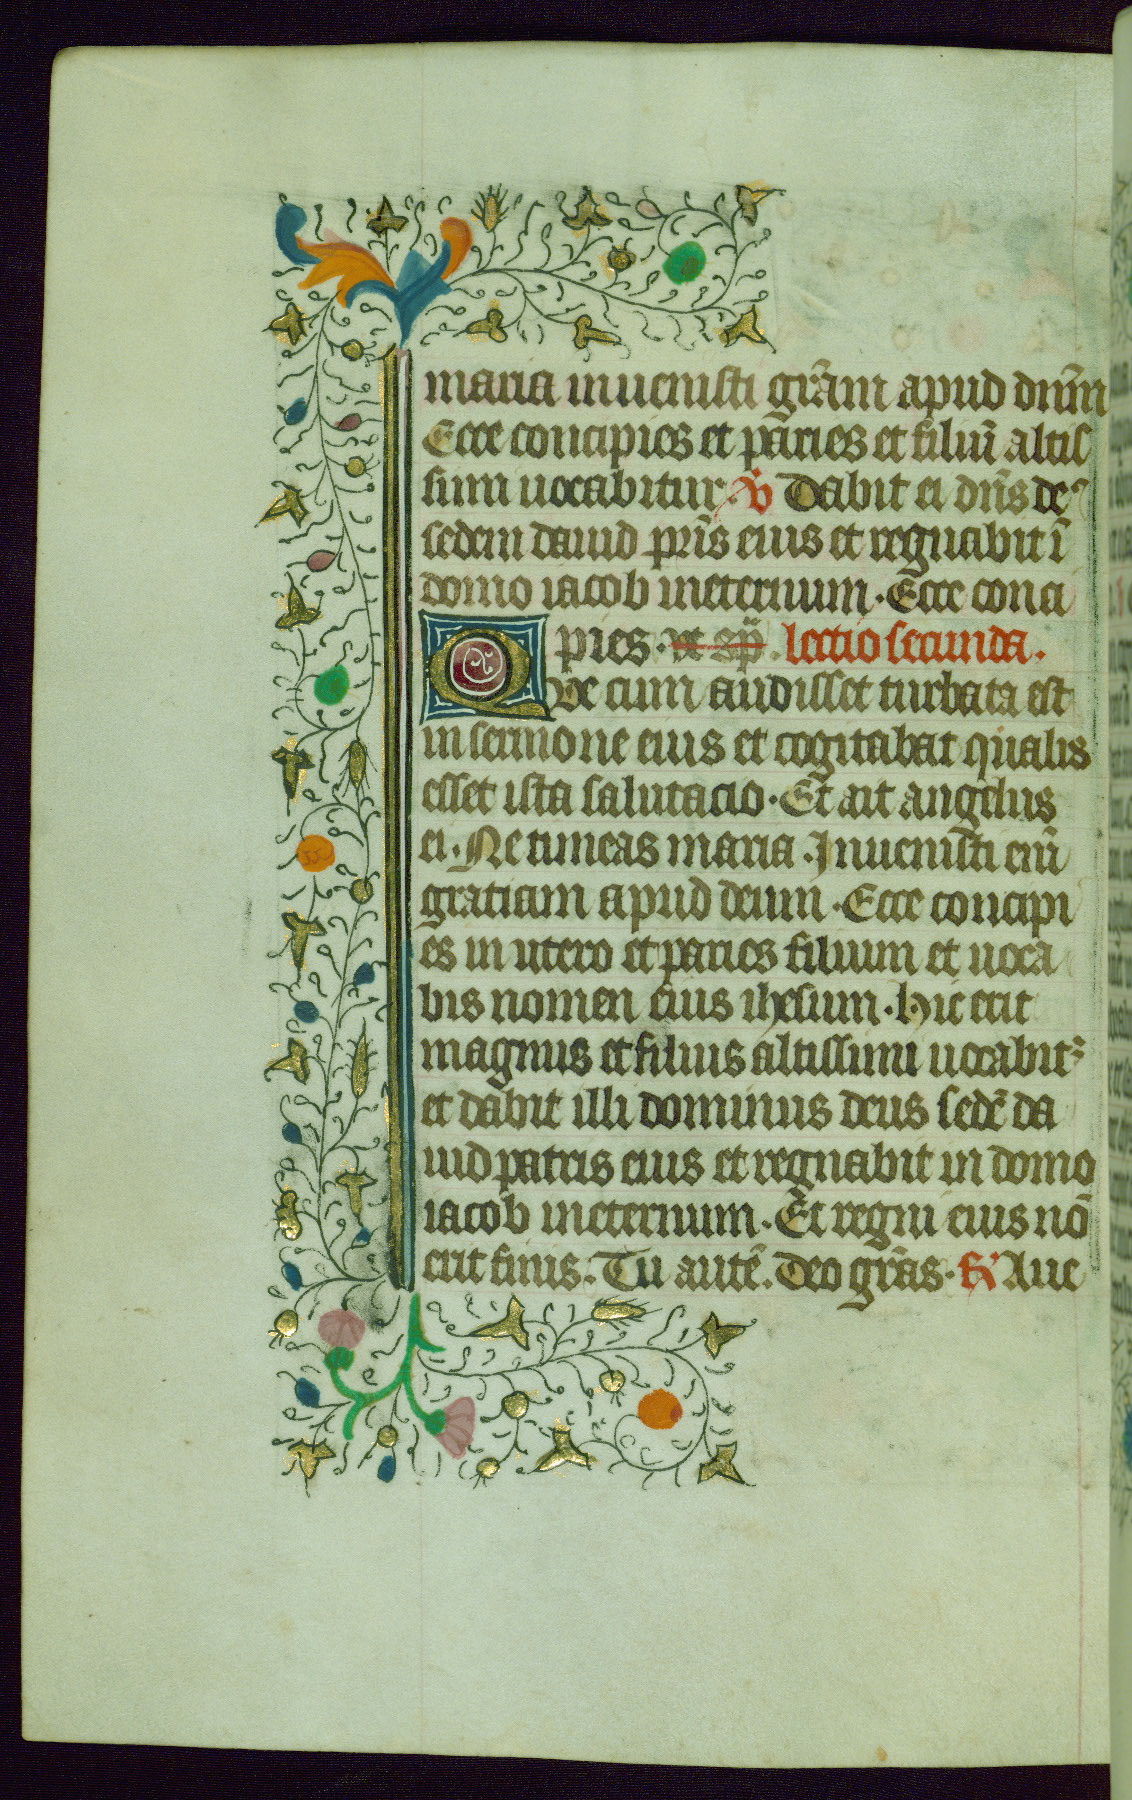 maria inuenisti grām apud dnm̄
Ecce concipies et paries et filiū altis
simi uocabitur. V̄ Dabit ei dn̄s de᷒
sedem dauid pr̄is eius et regnabit ī
domo iacob ineternum. Ecce conci
pies. lectio secunda.
Que cum audisset turbata est
in sermone eius et cogitabat qualis
esset ista salutacio. Et ait angelus
ei. Ne timeas maria. Inuenisti eni̅
gratiam apud deum. Ecce concipi
es in utero et paries filium et uoca
bis nomen eius ihesum. Hic erit
magnus et filius altissimi uocabit᷒
et dabit illi dominus deus sedē da
uid patris eius et regnabit in domo
iacob ineternum. Et regni eius nō
erit finis. Tu autē. Deo grās. R̄ Aue